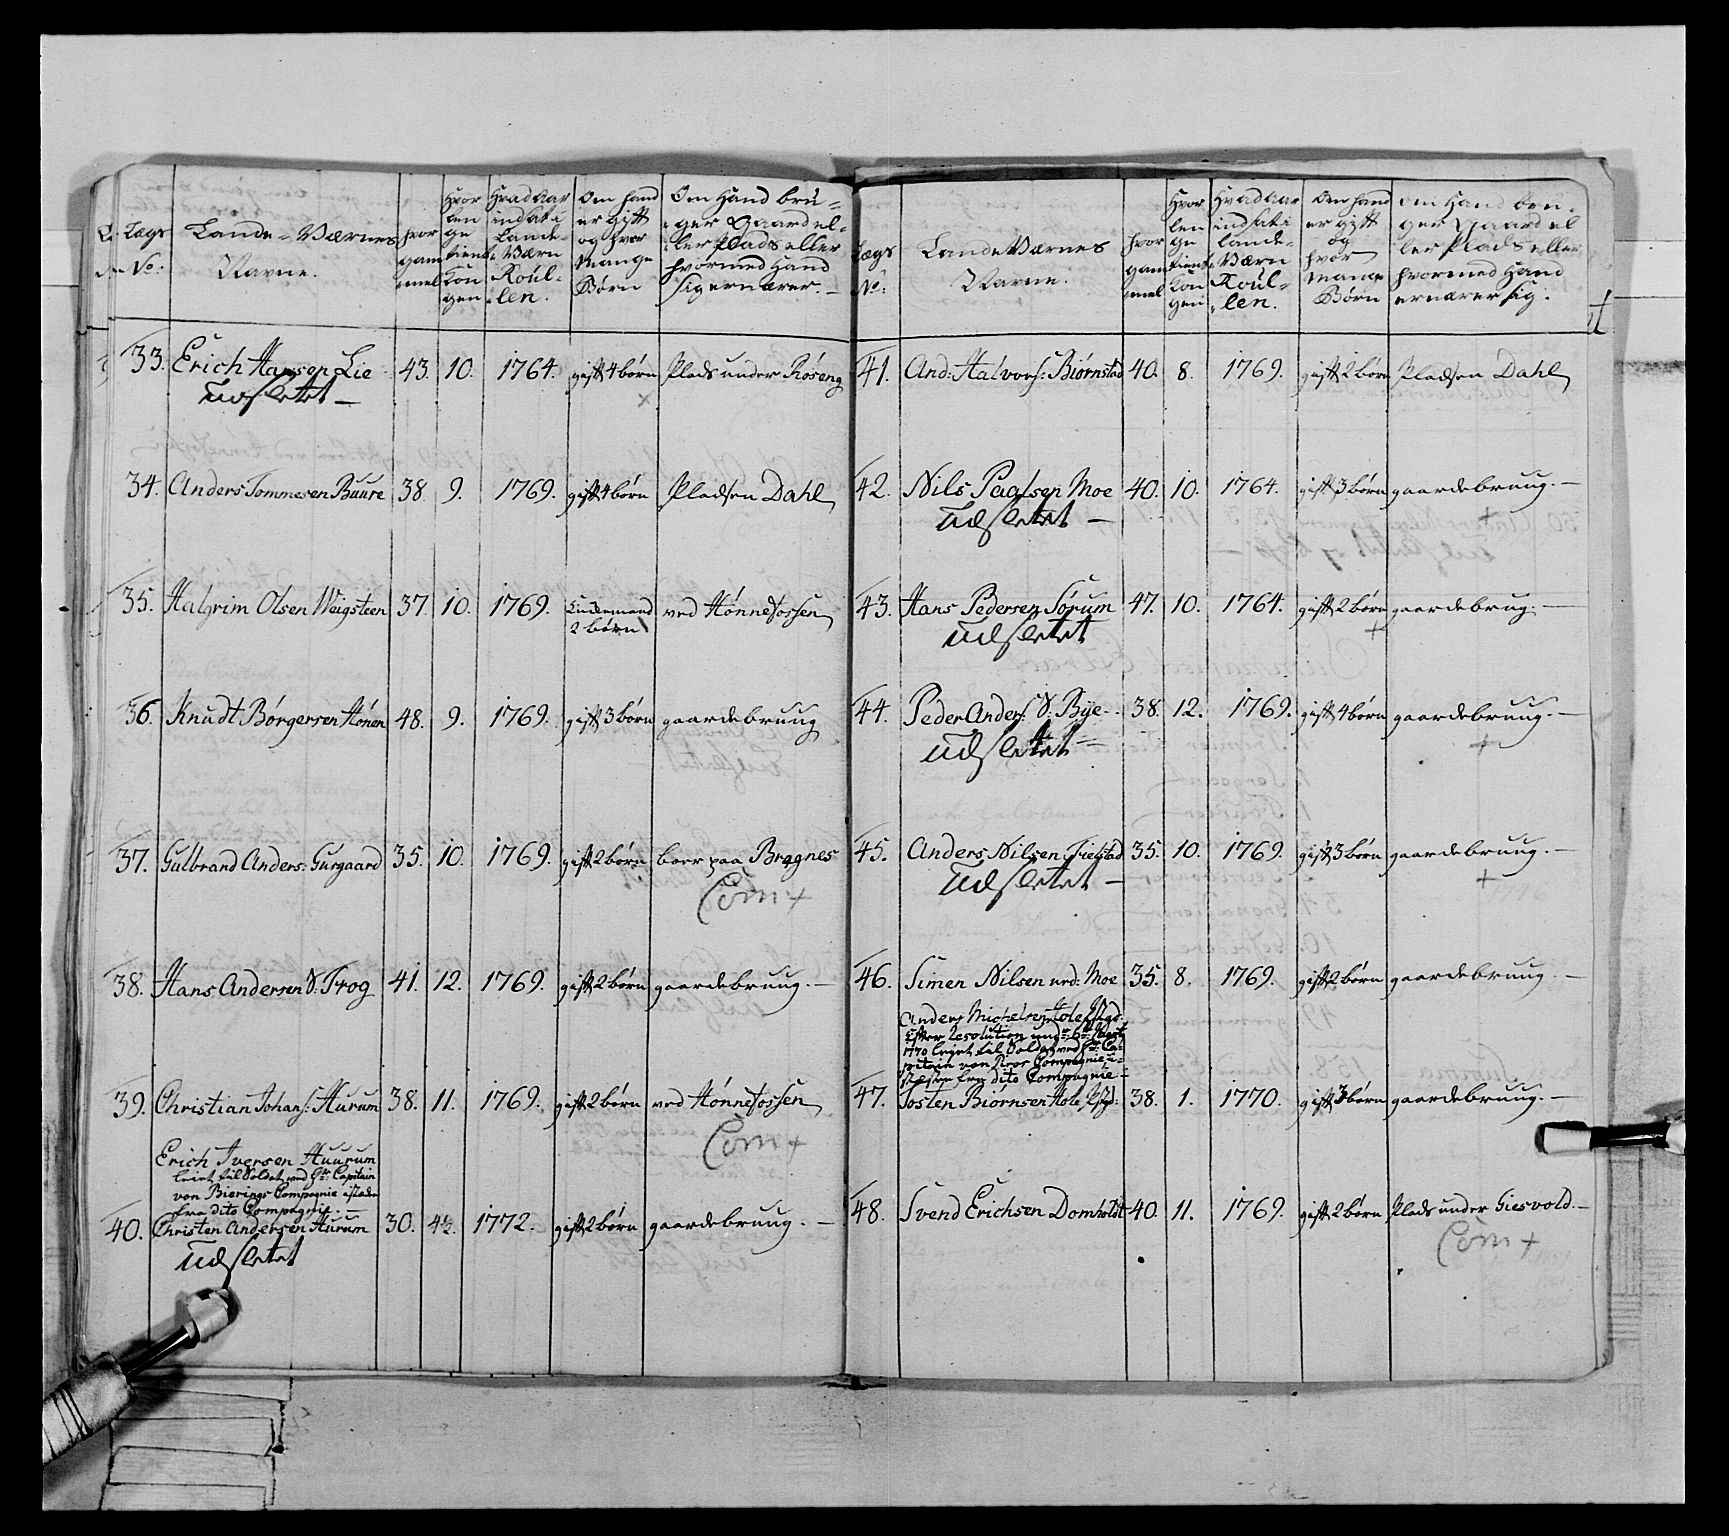 Lægs No:
Lande-Værnes Navne.
hvor gammel
Hvor lenge tient Kongen
Hvad Aar indsat i Lande-Værn Roul-len.
Om hand er gift og hvor Mange Børn
Om Hand bru-ger Gaard el-ler Plads eller hvormed Hand sig ernærer.
33. Erich Hansen Lie 43. 10. 1764. gift 4 børn Plads under Røseng
Udsletet
34. Anders Tommesen Buure 38 9. 1769. gift 4 børn Pladsen Dahl
35. Halgrim Olsen Weigsteen 37. 10. 1769. Enckemand 2 børn ved Hønnefossen
36. Knudt Børgersen Hønen 48. 9. 1769. gift 3 børn gaardebruug
37. Gulbrand Anders: Gurgaard 35. 10. 1769. gift 2 børn boer paa Bragnes
Com +
38. Hans Andersen S. Trog 41. 12. 1769. gift 2 børn gaardebruug.
39. Christian Johans: Hurum 38. 11. 1769. gift 2 børn ved Hønnefossen
Com +
Erich Iversen Huurum
leiet til Soldat ved Hr Capitain
von Bierings Compagnie istæden
fra dito Compagnie.
40. Christen Andersen Hurum 30. 4½. 1772. gift 2 børn gaardebruug.
Udsletet
Lægs No:
Lande Værnes Navne.
hvor gammel
Hvor len ge tient Kongen
Hvad Aar indsat i Lande-Værn Roul-len.
Om Hand er gift og hvor mange Børn
Om Hand bru-ger Gaard el ler Plads eller hvormed Hand ernærer sig.
41. And: Halvors: Biørnstad 40. 8. 1769. gift 2 børn Pladsen Dahl
42. Nils Paalsen Moe 40. 10. 1764. gift 3 børn gaardebruug.
Udsletet
43. Hans Pedersen Sørum 47. 10. 1764. gift 2 børn gaardebrug.
Udsletet
44. Peder Anders: S. Bye 38. 12. 1769. gift 4 børn gaardebruug.
Udsletet
45. Anders Nilsen Fielstad 35. 10. 1769. gift 3 børn gaardebruug.
Udsletet
46. Simen Nilsen ned: Moe 35. 8. 1769. gift 2 børn gaardebruug.
Anders Michelsen Hole
Efter Resolution
1770 leiet til Soldat ved Hr Ca-
pitain von Compagnie
fra dito Compagnie
47. Josten Biørnsen Hole 38. 1. 1770. gift 3 børn gaardebruug.
48. Svend Erichsen Domholdt 40 11. 1769. gift 2 børn Plads under Giesvold.
Com +